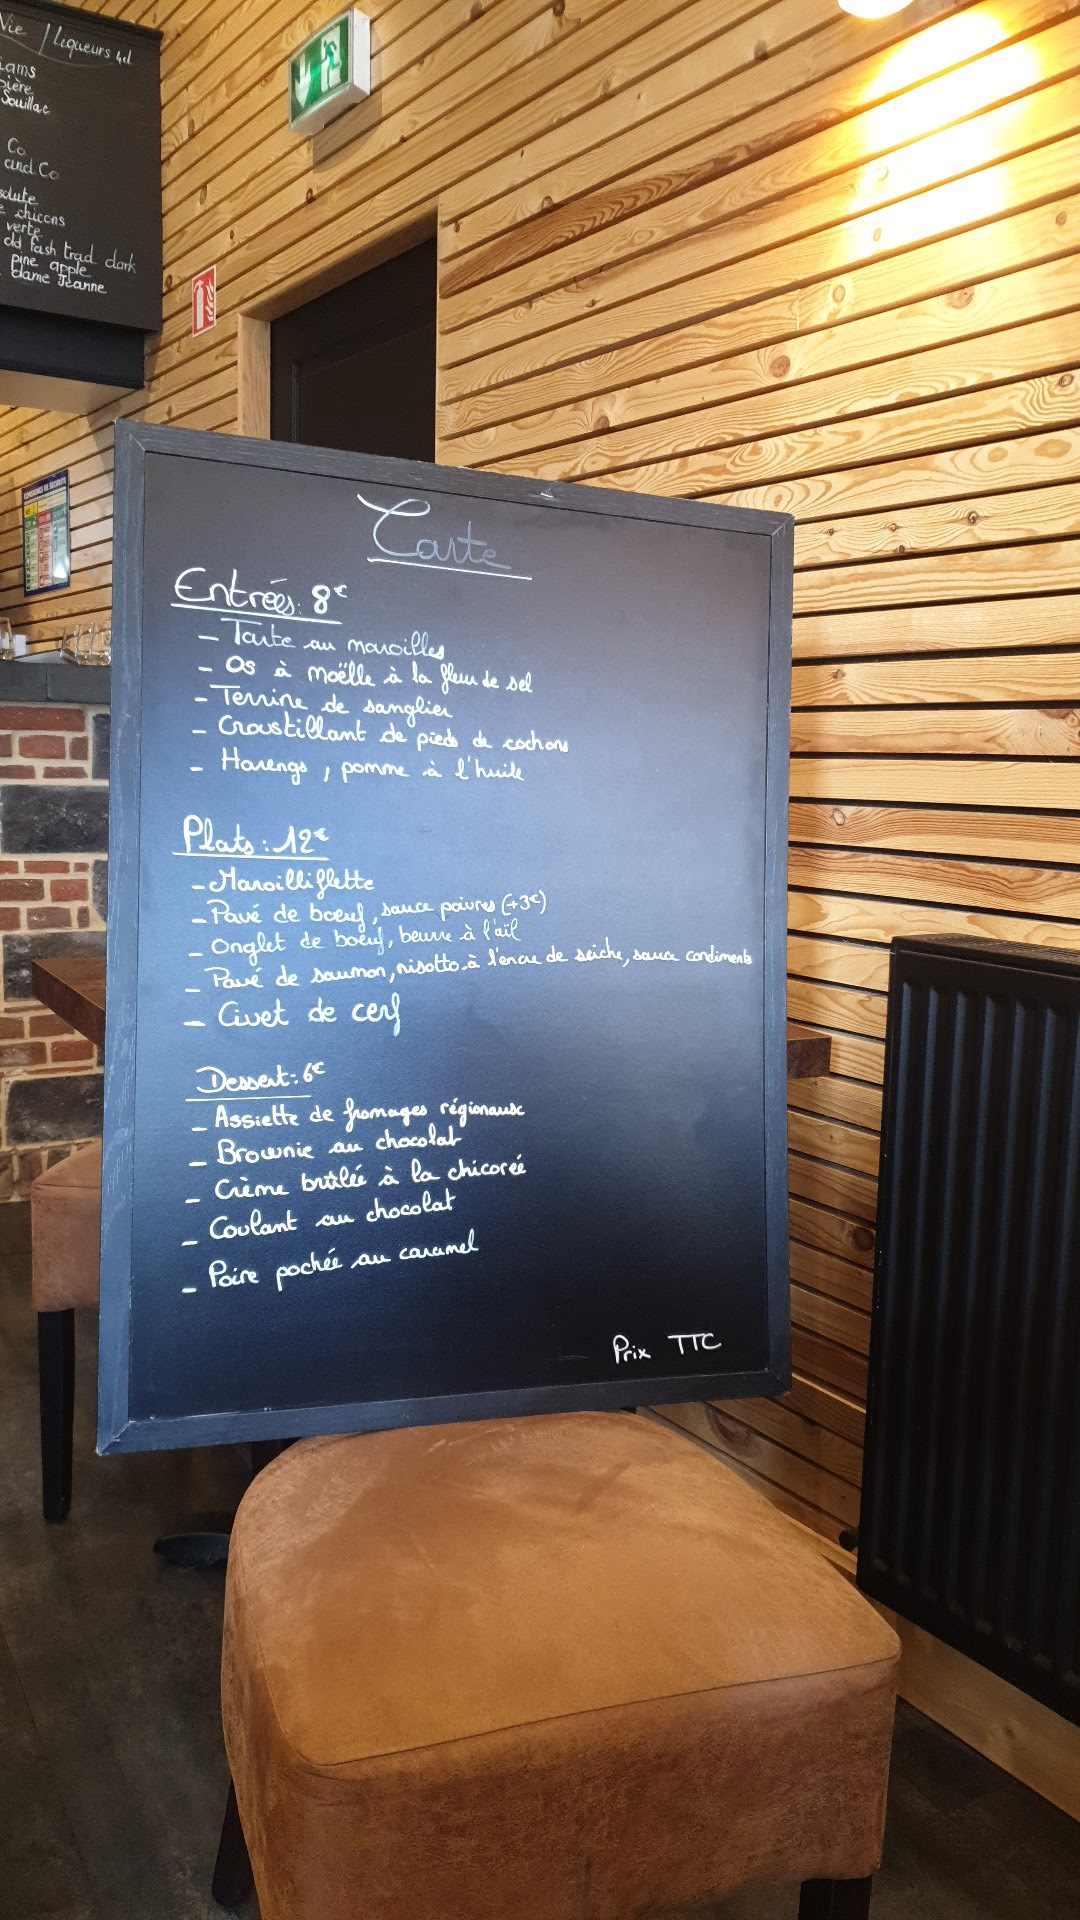 Vie / Liqueurs 4cl
Souillac
Co
and Co
chicons
verte
old fash trad dark
pine apple
dame Jeanne
CONSIGNES DE SECURITE
Carte
Entrées: 8€
- Tarte au maroilles
- Os à moëlle à la fleur de sel
- Terrine de sanglier
- Croustillant de pieds de cochons
- Harengs, pomme à l'huile
Plats: 12€
- Maroilliflette
- Pavé de boeuf, sauce poivres (+3€)
- Onglet de boeuf, beurre à l'aïl
- Pavé de saumon, risotto à l'encre de seiche, sauce condiments
- Civet de cerf
Dessert: 6€
- Assiette de fromages régionaux
- Brownie au chocolat
- Crème brûlée à la chicorée
- Coulant au chocolat
- Poire pochée au caramel
Prix TTC